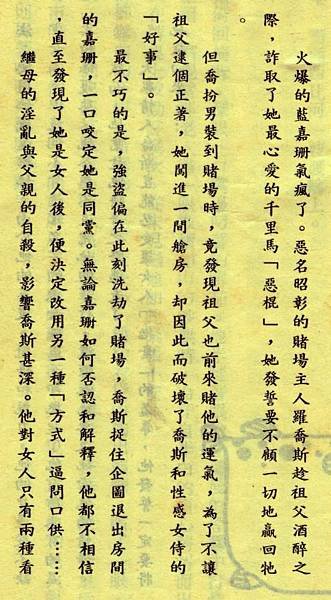 火爆的藍嘉珊氣瘋了。惡名昭彰的賭場主人羅喬斯趁祖父酒醉之
際，詐取了她最心愛的千里馬「惡棍」，她發誓要不顧一切地贏回牠
。
但喬扮男裝到賭場時，竟發現祖父也前來賭他的運氣，為了不讓
祖父逮個正著，她闖進一間艙房，却因此而破壞了喬斯和性感女侍的
「好事」。
最不巧的是，強盜偏在此刻洗劫了賭場，喬斯捉住企圖退出房間
的嘉珊，一口咬定她是同黨。無論嘉珊如何否認和解釋，他都不相信
，直至發現了她是女人後，便決定改用另一種「方式」逼問口供……
繼母的淫亂與父親的自殺，影響喬斯甚深。他對女人只有兩種看